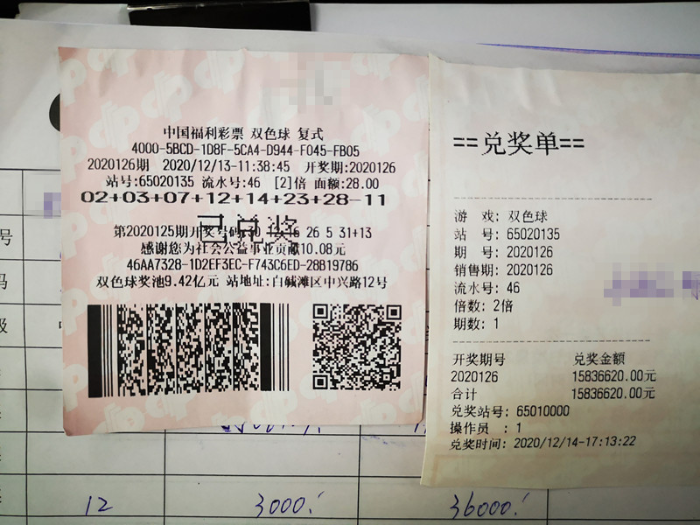 中国福利彩票 双色球 复式
4000-5BCD-1D8F-5CA4-D944-F045-FB05
2020126期 2020/12/13-11:38:45 开奖期:2020126
站号:65020135 流水号:46 [2]倍 面额:28.00
02+03+07+12+14+23+28-11
已兑奖
第2020125期开奖号码:30 26 5 31+13
感谢您为社会公益事业贡献10.08元
46AA7328-1D2EF3EC-F743C6ED-28B19786
双色球奖池9.42亿元 站地址:白碱滩区中兴路12号
==兑奖单==
游 戏: 双色球
站 号: 65020135
期 号: 2020126
销售期: 2020126
流水号: 46
倍数: 2倍
期数: 1
开奖期号 兑奖金额
2020126 15836620.00元
合计 15836620.00元
兑奖站号: 65010000
操作员 : 1
兑奖时间: 2020/12/14-17:13:22
号
码
级
12 3000. 36000.